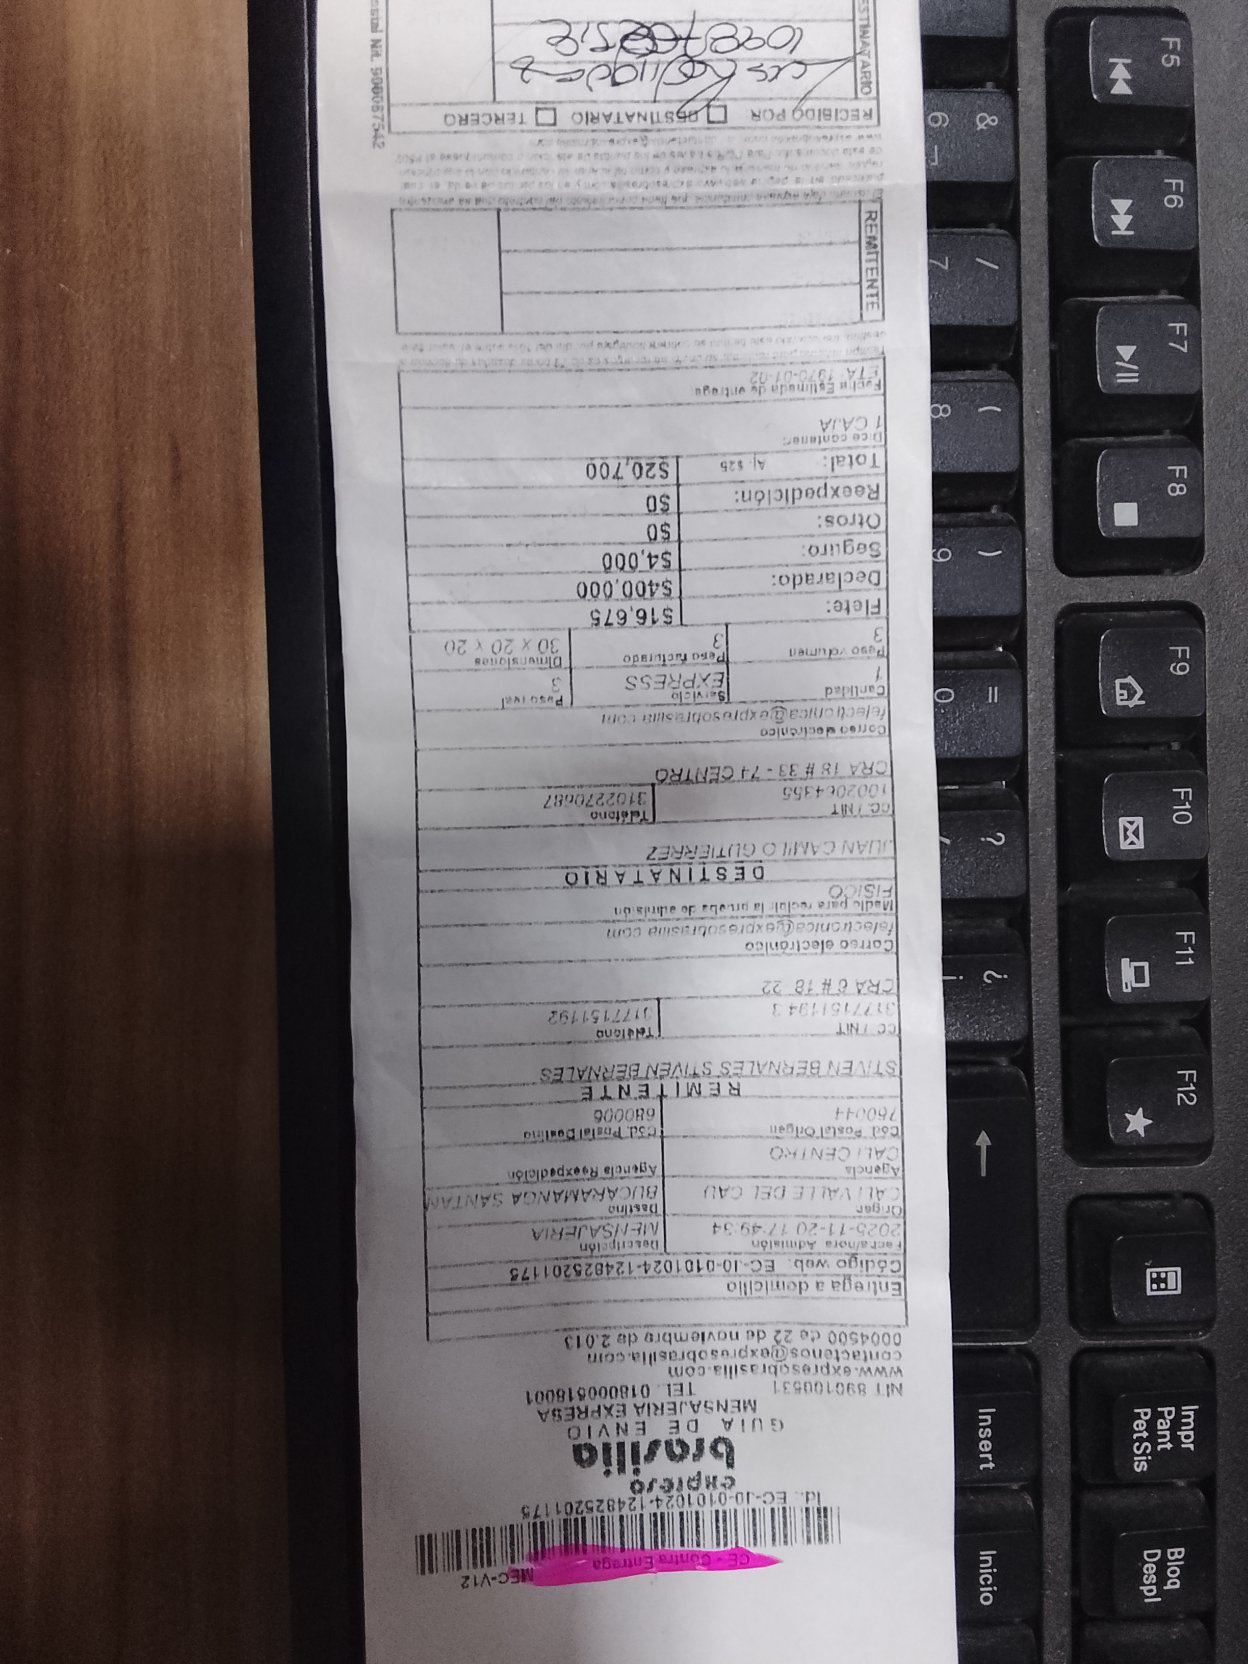 CE - Contra Entrega
MEC-V12
Id.: EC-J0-0101024-124825201175
expreso
brasilia
GUIA DE ENVIO
MENSAJERIA EXPRESA
NIT 890100531 TEL. 018000518001
www.expresobrasilia.com
contactenos@expresobrasilia.com
0004500 de 22 de noviembre de 2.013
Entrega a domicilio
Código web: EC-J0-0101024-124825201175
Fecha/hora Admisión Descripción
2025-11-20 17:49:34 MENSAJERIA
Origen Destino
CALI VALLE DEL CAU BUCARAMANGA SANTAN
Agencia Agencia Reexpedición
CALI CENTRO
Cód. Postal Origen Cód. Postal Destino
760044 680006
REMITENTE
STIVEN BERNALES STIVEN BERNALES
CC / NIT Teléfono
3177151194 3 3177151192
CRA 6 # 18 22
Correo electrónico
felectronica@expresobrasilia.com
Medio para recibir la prueba de admisión
FISICO
DESTINATARIO
JUAN CAMILO GUTIERREZ
CC / NIT Teléfono
1002064355 3102270687
CRA 18 # 33 - 74 CENTRO
Correo electrónico
felectronica@expresobrasilia.com
Cantidad Servicio Peso real
1 EXPRESS 3
Peso volumen Peso facturado Dimensiones
3 3 30 x 20 x 20
Flete: $16,675
Declarado: $400,000
Seguro: $4,000
Otros: $0
Reexpedición: $0
Total: Aj. $25 $20,700
Dice contener:
1 CAJA
Fecha Estimada de entrega
ETA: 1970-01-02
REMITENTE
RECIBIDO POR DESTINATARIO TERCERO
DESTINATARIO
F5
F6
F7
F8
F9
F10
F11
F12
&
6
/
7
(
8
)
9
=
0
?
¿
¡
Insert
Inicio
Impr
Pant
PetSis
Bloq
Despl